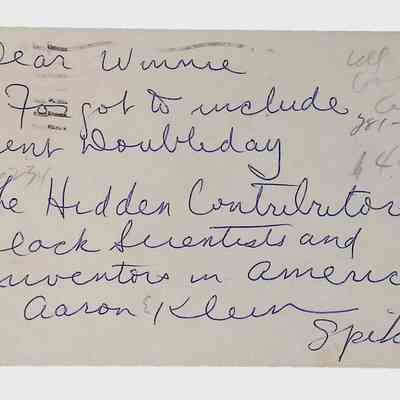 Dear Winnie
Forgot to include
ent Doubleday
he Hidden Contributor
lack Scientists and
nventors in Americ
Aaron E Klein
Spik